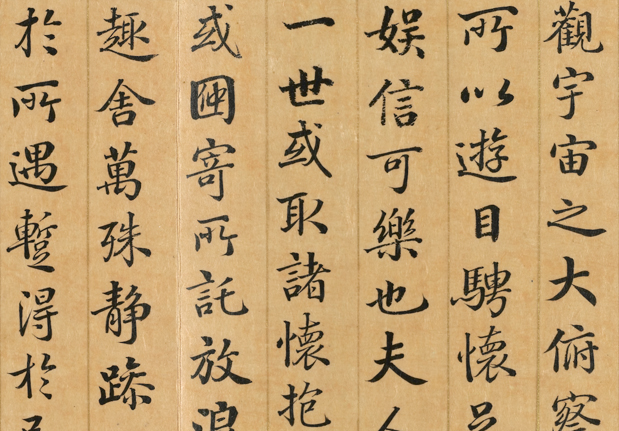 觀宇宙之大俯察
所以遊目騁懷
娛信可樂也夫人
一世或取諸懷抱
或因寄所託放浪
趣舍萬殊静躁
於所遇蹔得於